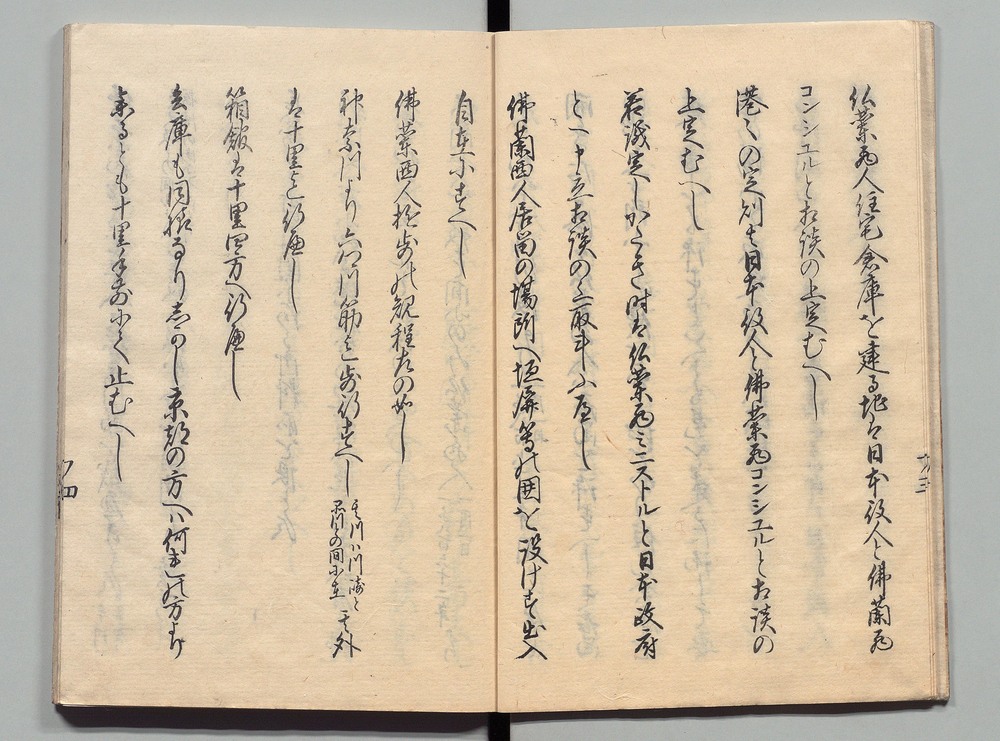 仏蘭西人住宅倉庫を建る地ハ日本役人と佛蘭西
コンシユルとお談の上定むへし
港々の定則も日本役人と佛蘭西コンシユルとお談の
上定むへし
若議定しかたき時は仏蘭西ミニストルと日本政府
佛蘭西人居留の場所へ垣屏等の囲を設けす出入
自在にすへし
佛蘭西人歩の規程左の如し
神奈川より六郷川筋を歩行すへし
其川ハ川崎と
品川との間に在
其外
は十里を行へし
箱館は十里四方へ行へし
兵庫も同様なり しかし京都の方へハ何れの方より
来るとも十里手前にて止むへし
ノ三
ノ四